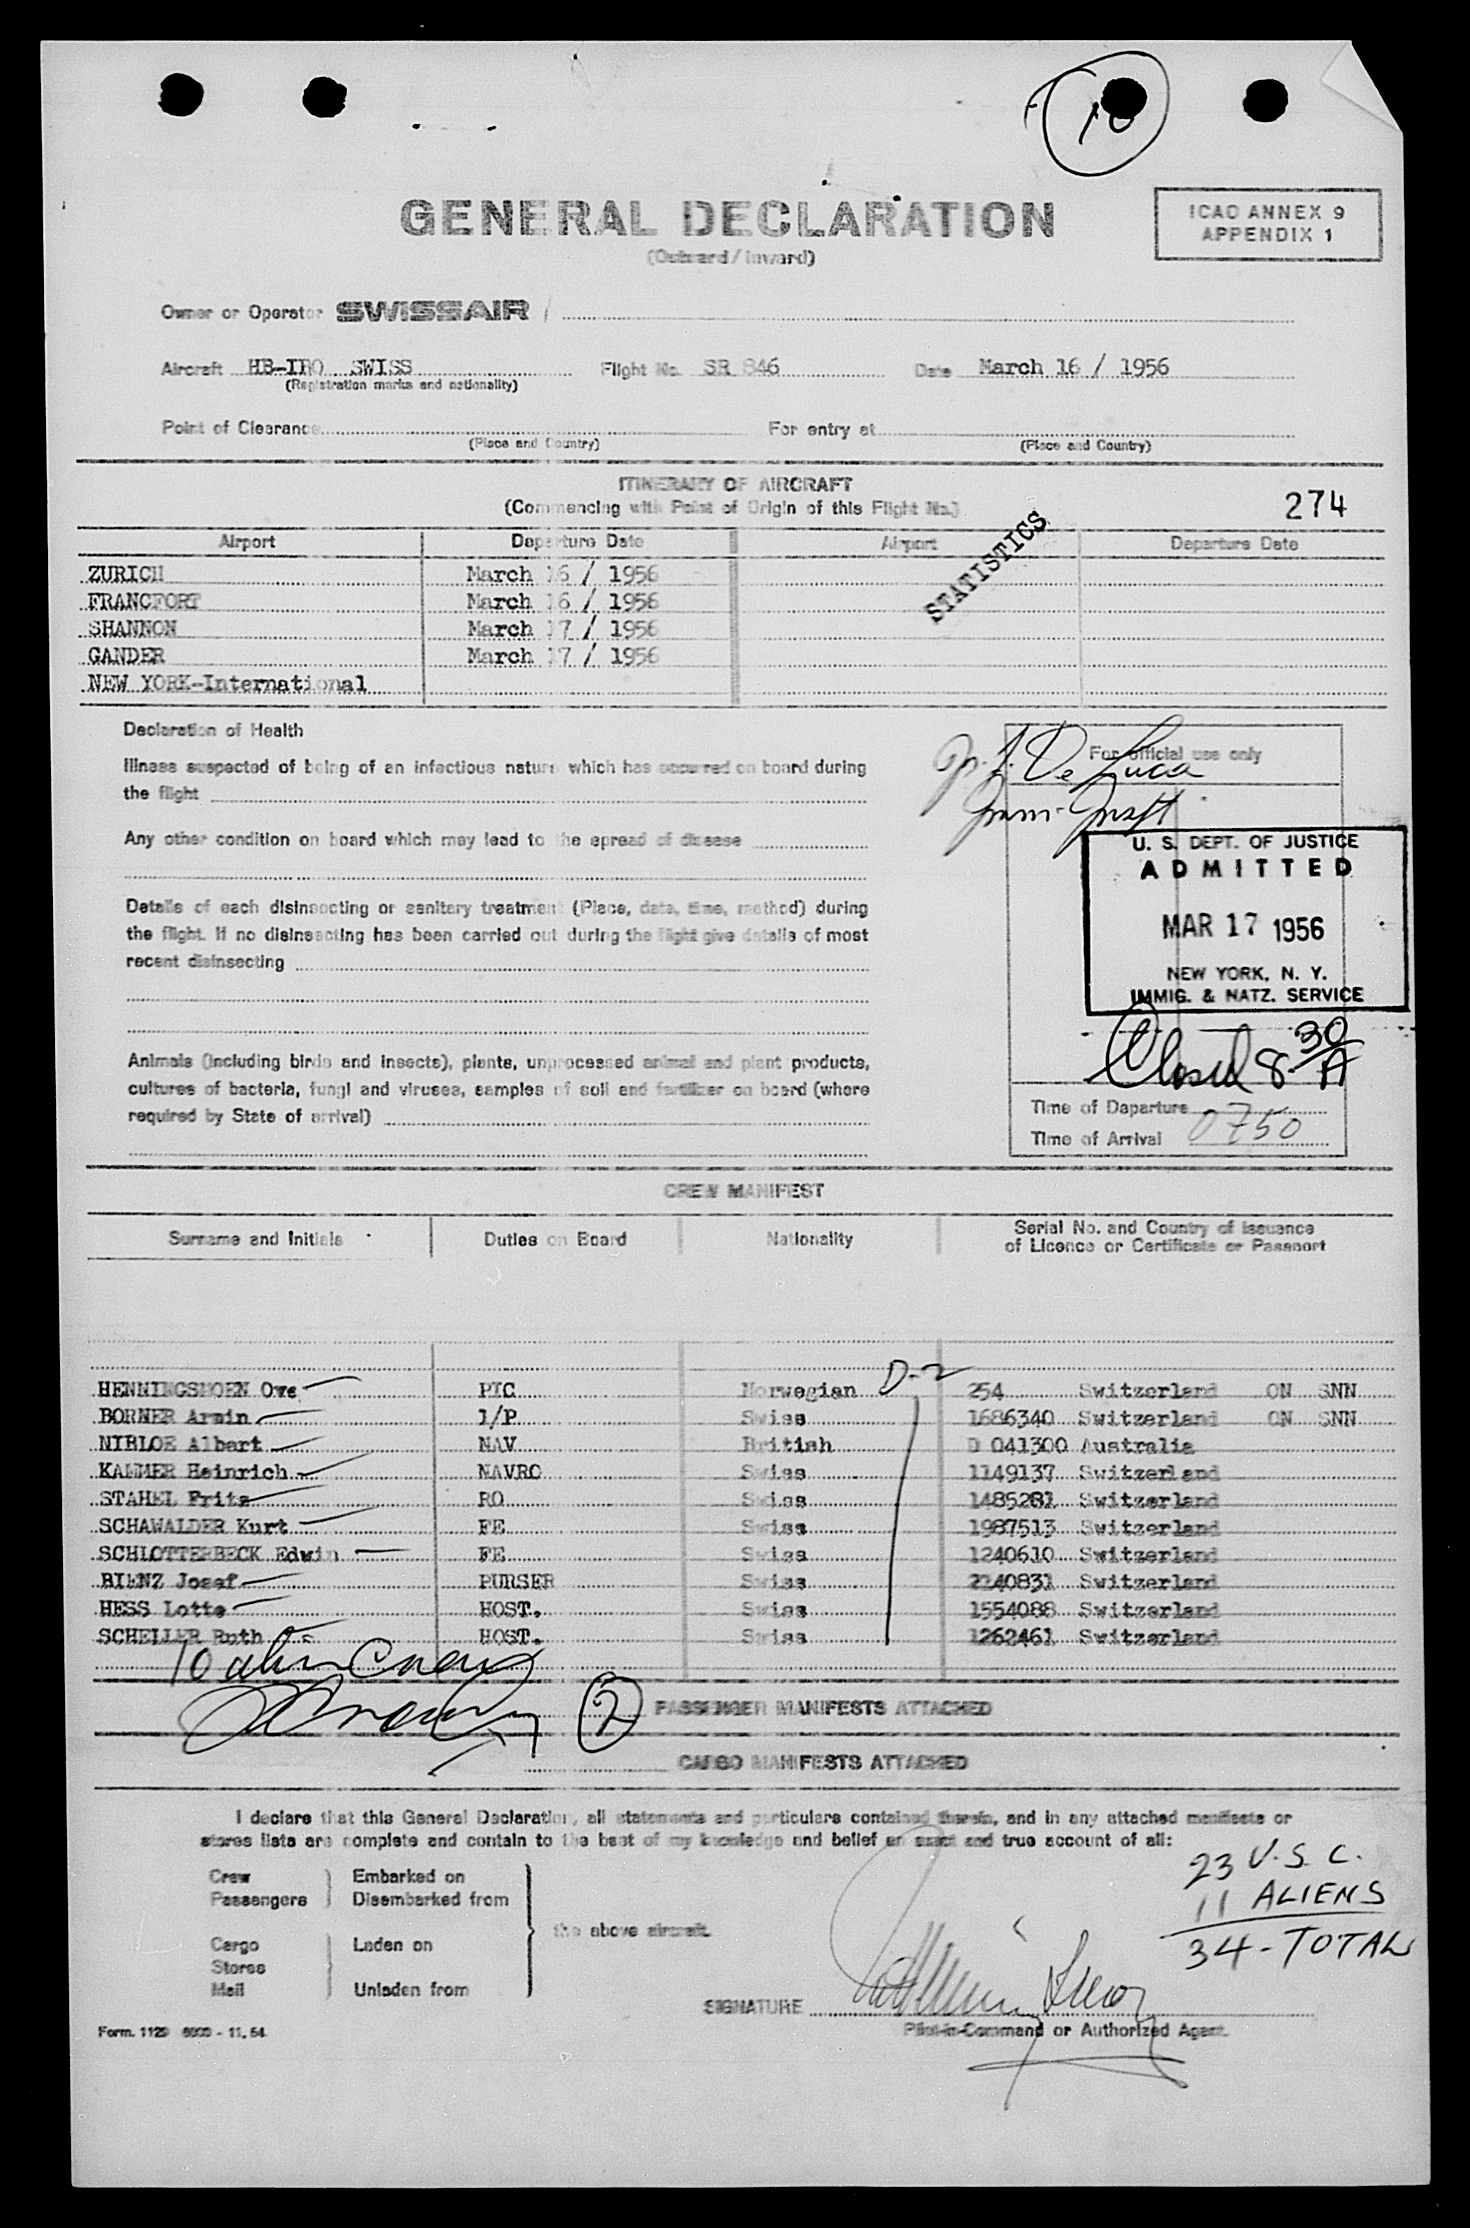 10
GENERAL DECLARATION
(Outward / Inward)
ICAO ANNEX 9
APPENDIX 1
Owner or Operator SWISSAIR /
Aircraft HB-IBO SWISS Flight No. SR 846 Date March 16 / 1956
(Registration marks and nationality)
Point of Clearance For entry at
(Place and Country) (Place and Country)
ITINERARY OF AIRCRAFT
(Commencing with Point of Origin of this Flight No.)
274
Airport Departure Date Airport Departure Date
STATISTICS
ZURICH March 16 / 1956
FRANCFORT March 16 / 1956
SHANNON March 17 / 1956
GANDER March 17 / 1956
NEW YORK-International
Declaration of Health
Illness suspected of being of an infectious nature which has occurred on board during
the flight
Any other condition on board which may lead to the spread of disease
Details of each disinsecting or sanitary treatment (Place, date, time, method) during
the flight. If no disinsecting has been carried out during the flight give details of most
recent disinsecting
Animals (including birds and insects), plants, unprocessed animal and plant products,
cultures of bacteria, fungi and viruses, samples of soil and fertilizer on board (where
required by State of arrival)
For official use only
De Luca
U. S. DEPT. OF JUSTICE
ADMITTED
MAR 17 1956
NEW YORK, N. Y.
IMMIG. & NATZ. SERVICE
Closed 8 30/A
Time of Departure
Time of Arrival 0750
CREW MANIFEST
Surname and Initials Duties on Board Nationality Serial No. and Country of Issuance
of Licence or Certificate or Passport
D-2
HENNINGSMOEN Owe PIC Norwegian 254 Switzerland ON SNN
BORNER Armin 1/P Swiss 1686340 Switzerland ON SNN
NIBLOE Albert NAV British D 041300 Australia
KAMMER Heinrich NAVRO Swiss 1149137 Switzerland
STAHEL Fritz RO Swiss 1485281 Switzerland
SCHAWALDER Kurt FE Swiss 1987513 Switzerland
SCHLOTTERBECK Edwin FE Swiss 1240610 Switzerland
BIENZ Josef PURSER Swiss 2140831 Switzerland
HESS Lotte HOST. Swiss 1554088 Switzerland
SCHELLER Ruth HOST. Swiss 1262461 Switzerland
10 alien Crew
2 PASSENGER MANIFESTS ATTACHED
CARGO MANIFESTS ATTACHED
I declare that this General Declaration, all statements and particulars contained therein, and in any attached manifests or
stores lists are complete and contain to the best of my knowledge and belief an exact and true account of all:
Crew Embarked on
Passengers Disembarked from
the above aircraft.
Cargo Laden on
Stores
Mail Unladen from
23 U.S.C.
11 ALIENS
34 - TOTAL
SIGNATURE
Pilot-in-Command or Authorized Agent.
Form. 1129 6000 - 11.54